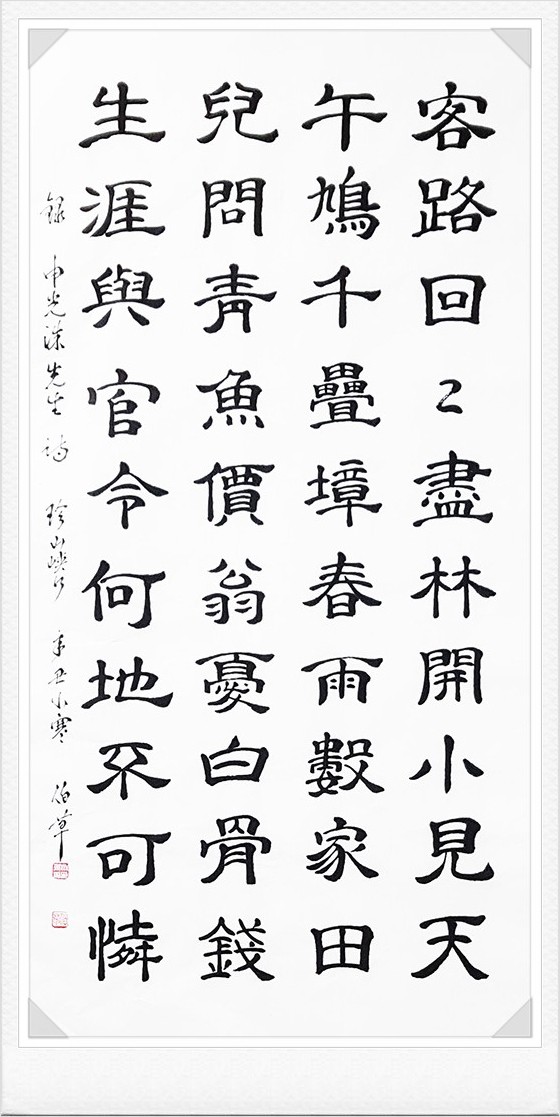 客路回〻盡林開小見天
午鳩千疊墇春雨數家田
兒問青魚價翁憂白骨錢
生涯與官令何地不可憐
錄 申光洙先生 詩 珍山峽口 辛丑小寒